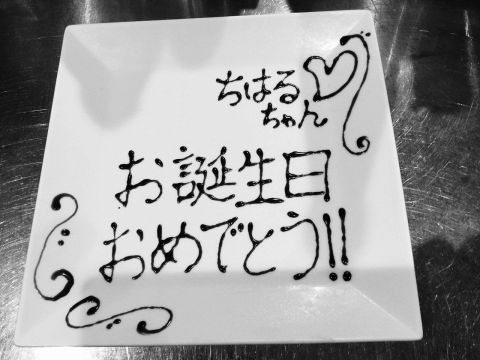 ちはる
ちゃん
お誕生日
おめでとう!!